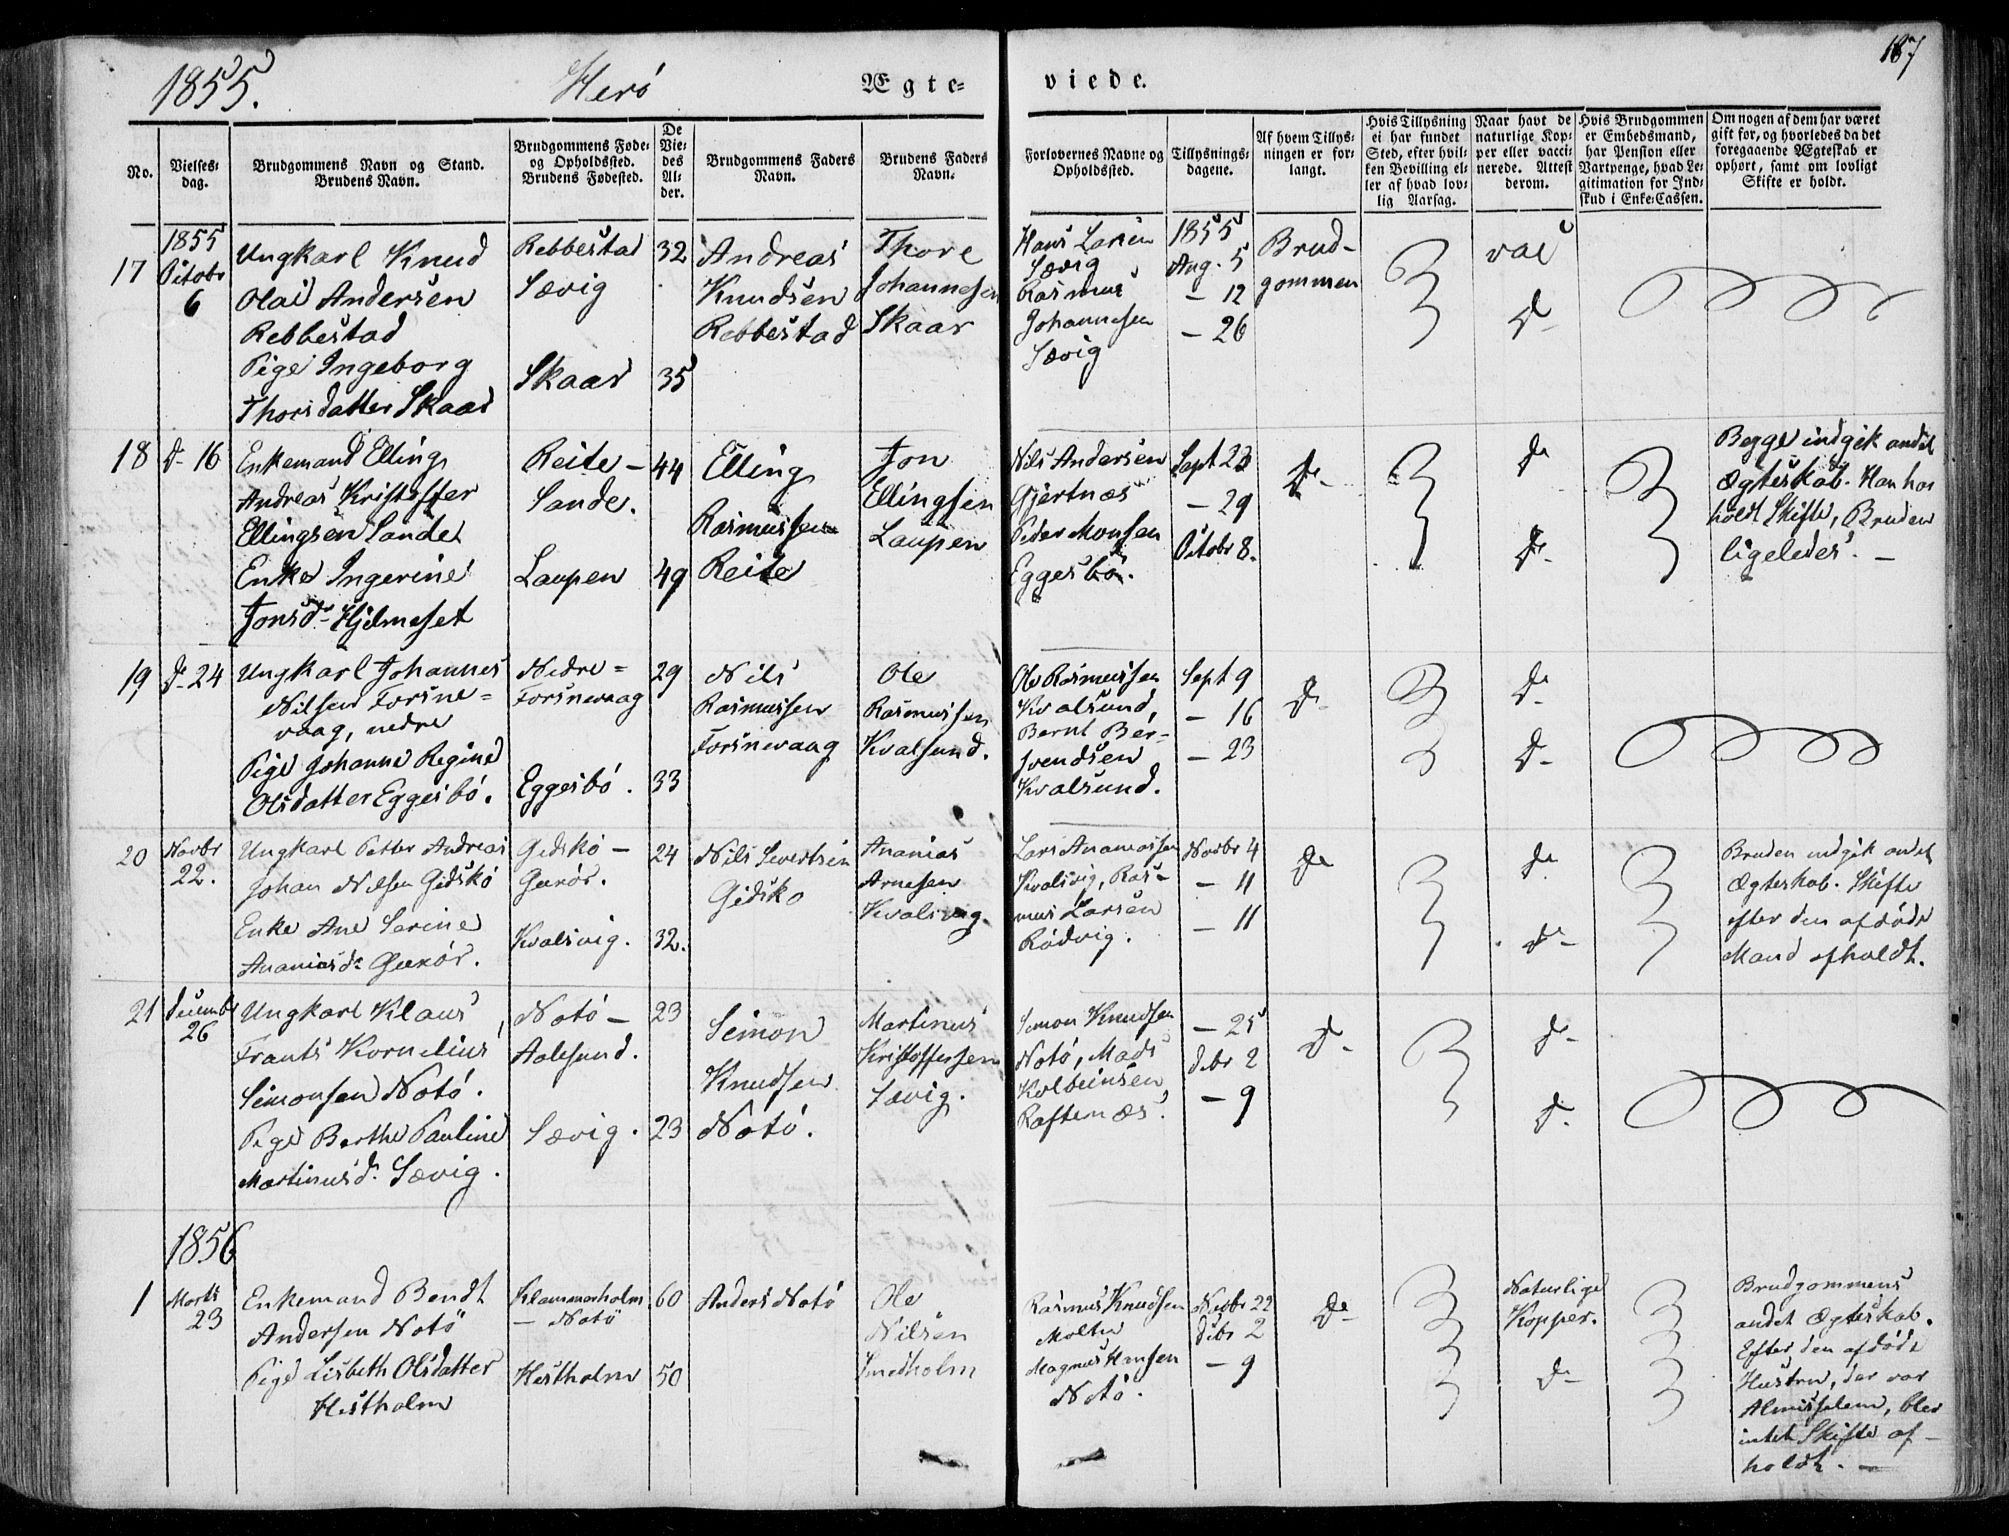 1855. Herö Ægte= viede. 187
No.
Vielses-
dag.
Brudgommens Navn og Stand.
Brudens Navn.
Brudgommens Føde-
og Opholdssted.
Brudens Fødested.
De
Vie-
des
Al-
der.
Brudgommens Faders
Navn.
Brudens Faders
Navn.
Forlovernes Navne og
Opholdssted.
Tillysnings-
dagene.
Af hvem Tillys-
ningen er for-
langt.
Hvis Tillysning
ei har fundet
Sted, efter hvil-
ken Bevilling el-
ler af hvad lov-
lig Aarsag.
Naar havt de
naturlige Kop-
per eller vacci-
nerede. Attest
derom.
Hvis Brudgommen
er Embedsmand,
har Pension eller
Vartpenge, hvad Le-
gitimation for Ind-
skud i Enke-Cassen.
Om nogen af dem har været
gift før, og hvorledes da det
foregaaende Ægteskab er
ophørt, samt om lovligt
Skifte er holdt.
17
1855
Octobr
6
Ungkarl Knud
Olai Andersen
Rebbestad
Pige Ingeborg
Thorsdatter Skaar
Rebbestad
Sævig
Skaar
32
35
Andreas
Knudsen
Rebbestad
Thore
Johannesen
Skaar
Hans Larsen
Sævig
Rasmus
Johannesen
Sævig
1855
Aug. 5
— 12
— 26
Brud-
gommen
vac
D-
18
D- 16
Enkemand Elling
Andreas Kristoffer
Ellingsen Sande
Enke Ingerine
Jonsd- Hjelmeset
Reite —
Sande.
Laupen
44
49
Elling
Rasmussen
Reite
Jon
Ellingsen
Laupen
Nils Andersen
Gjertnæs
Peder Monsen
Eggesbö.
Sept 23
— 29
Octobr 8.
D-
D-
D-
Begge indgik andet
Ægteskab. Han har
holdt Skifte, Bruden
ligeledes. —
19
D- 24
Ungkarl Johannes
Nilsen Forsne=
vaag, nedre
Pige Johanne Regine
Olsdatter Eggesbö.
Nedre=
Forsnevaag
Eggesbö.
29
33
Nils
Rasmussen
Forsnevaag
Ole
Rasmussen
Kvalsund.
Ole Rasmussen
Kvalsund,
Bernt Ber-
svendsen
Kvalsund.
Sept 9
— 16
— 23
D-
D-
D-
20
Novbr
22.
Ungkarl Petter Andreas
Johan Nilsen Gidskö
Enke Ane Serine
Ananiasd- Gurör.
Gidskö —
Gurör.
Kvalsvig.
24
32.
Nils Sivertsen
Gidskö
Ananias
Arnesen
Kvalsvig.
Lars Ananiassen
Kvalsvig, Ras-
mus Larsen
Rödvig.
Novbr 4
— 11
— 11
D-
D-
D-
Bruden indgik andet
Ægteskab. Skifte
efter den afdöde
Mand afholdt.
21
Decembr
26
Ungkarl Klaus
Frants Kornelius
Simonsen Notö.
Pige Berthe Pauline
Martinusd. Sævig.
Notö —
Aalesund.
Sævig.
23
23
Simon
Knudsen
Notö.
Martinus
Kristoffersen
Sævig.
Simon Knudsen
Notö, Mads
Kolbeinsen
Raftenæs.
— 25
Dcbr 2
— 9
D-
D-
D-
1856
1
Marts
23
Enkemand Bendt
Andersen Notö
Pige Lisbeth Olsdatter
Hestholm
Klammerholm
— Notö
Hestholm
60
50
Anders Notö
Ole
Nilsen
Smedholm
Rasmus Knudsen
Moltu
Magnus Hansen
Notö.
Novbr 22
Dcbr 2
— 9
D-
Naturlige
Kopper.
D-
Brudgommens
andet Ægteskab.
Efter den afdöde
Hustru, der var
Almisselem, blev
intet Skifte af-
holdt. —